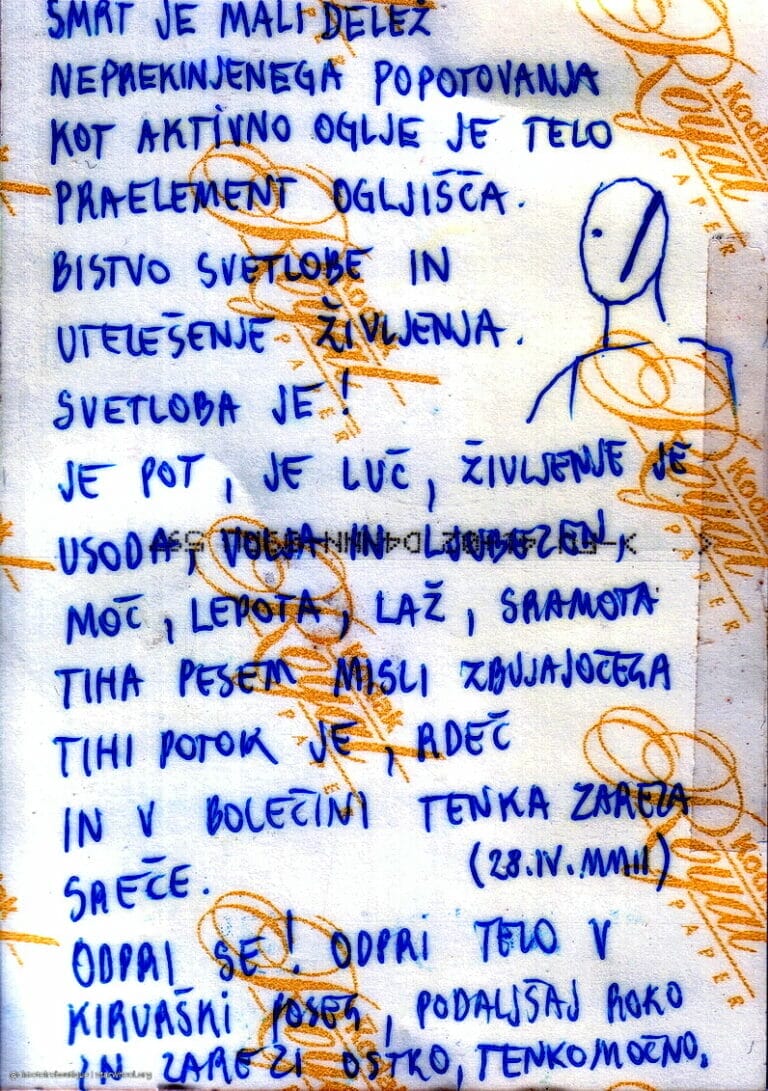 SMRT JE MALI DELEŽ
NEPREKINJENEGA POPOTOVANJA
KOT AKTIVNO OGLJE JE TELO
PRAELEMENT OGLJIŠČA.
BISTVO SVETLOBE IN
UTELEŠENJE ŽIVLJENJA.
SVETLOBA JE!
JE POT, JE LUČ, ŽIVLJENJE JE
USODA, VOLJA IN LJUBEZEN,
MOČ, LEPOTA, LAŽ, SRAMOTA
TIHA PESEM MISLI ZBUJAJOČEGA
TIHI POTOK JE, RDEČ
IN V BOLEČINI TENKA ZAREZA
SREČE.
(28.IV.MMII)
ODPRI SE! ODPRI TELO V
KIRURŠKI POSEG, PODALJŠAJ ROKO
IN ZAREŽI OSTRO, TENKOMOČNO.
Kodak
Royal
PAPER
Kodak
Royal
PAPER
Kodak
Royal
PAPER
Kodak
Royal
PAPER
Kodak
Royal
PAPER
Kodak
Royal